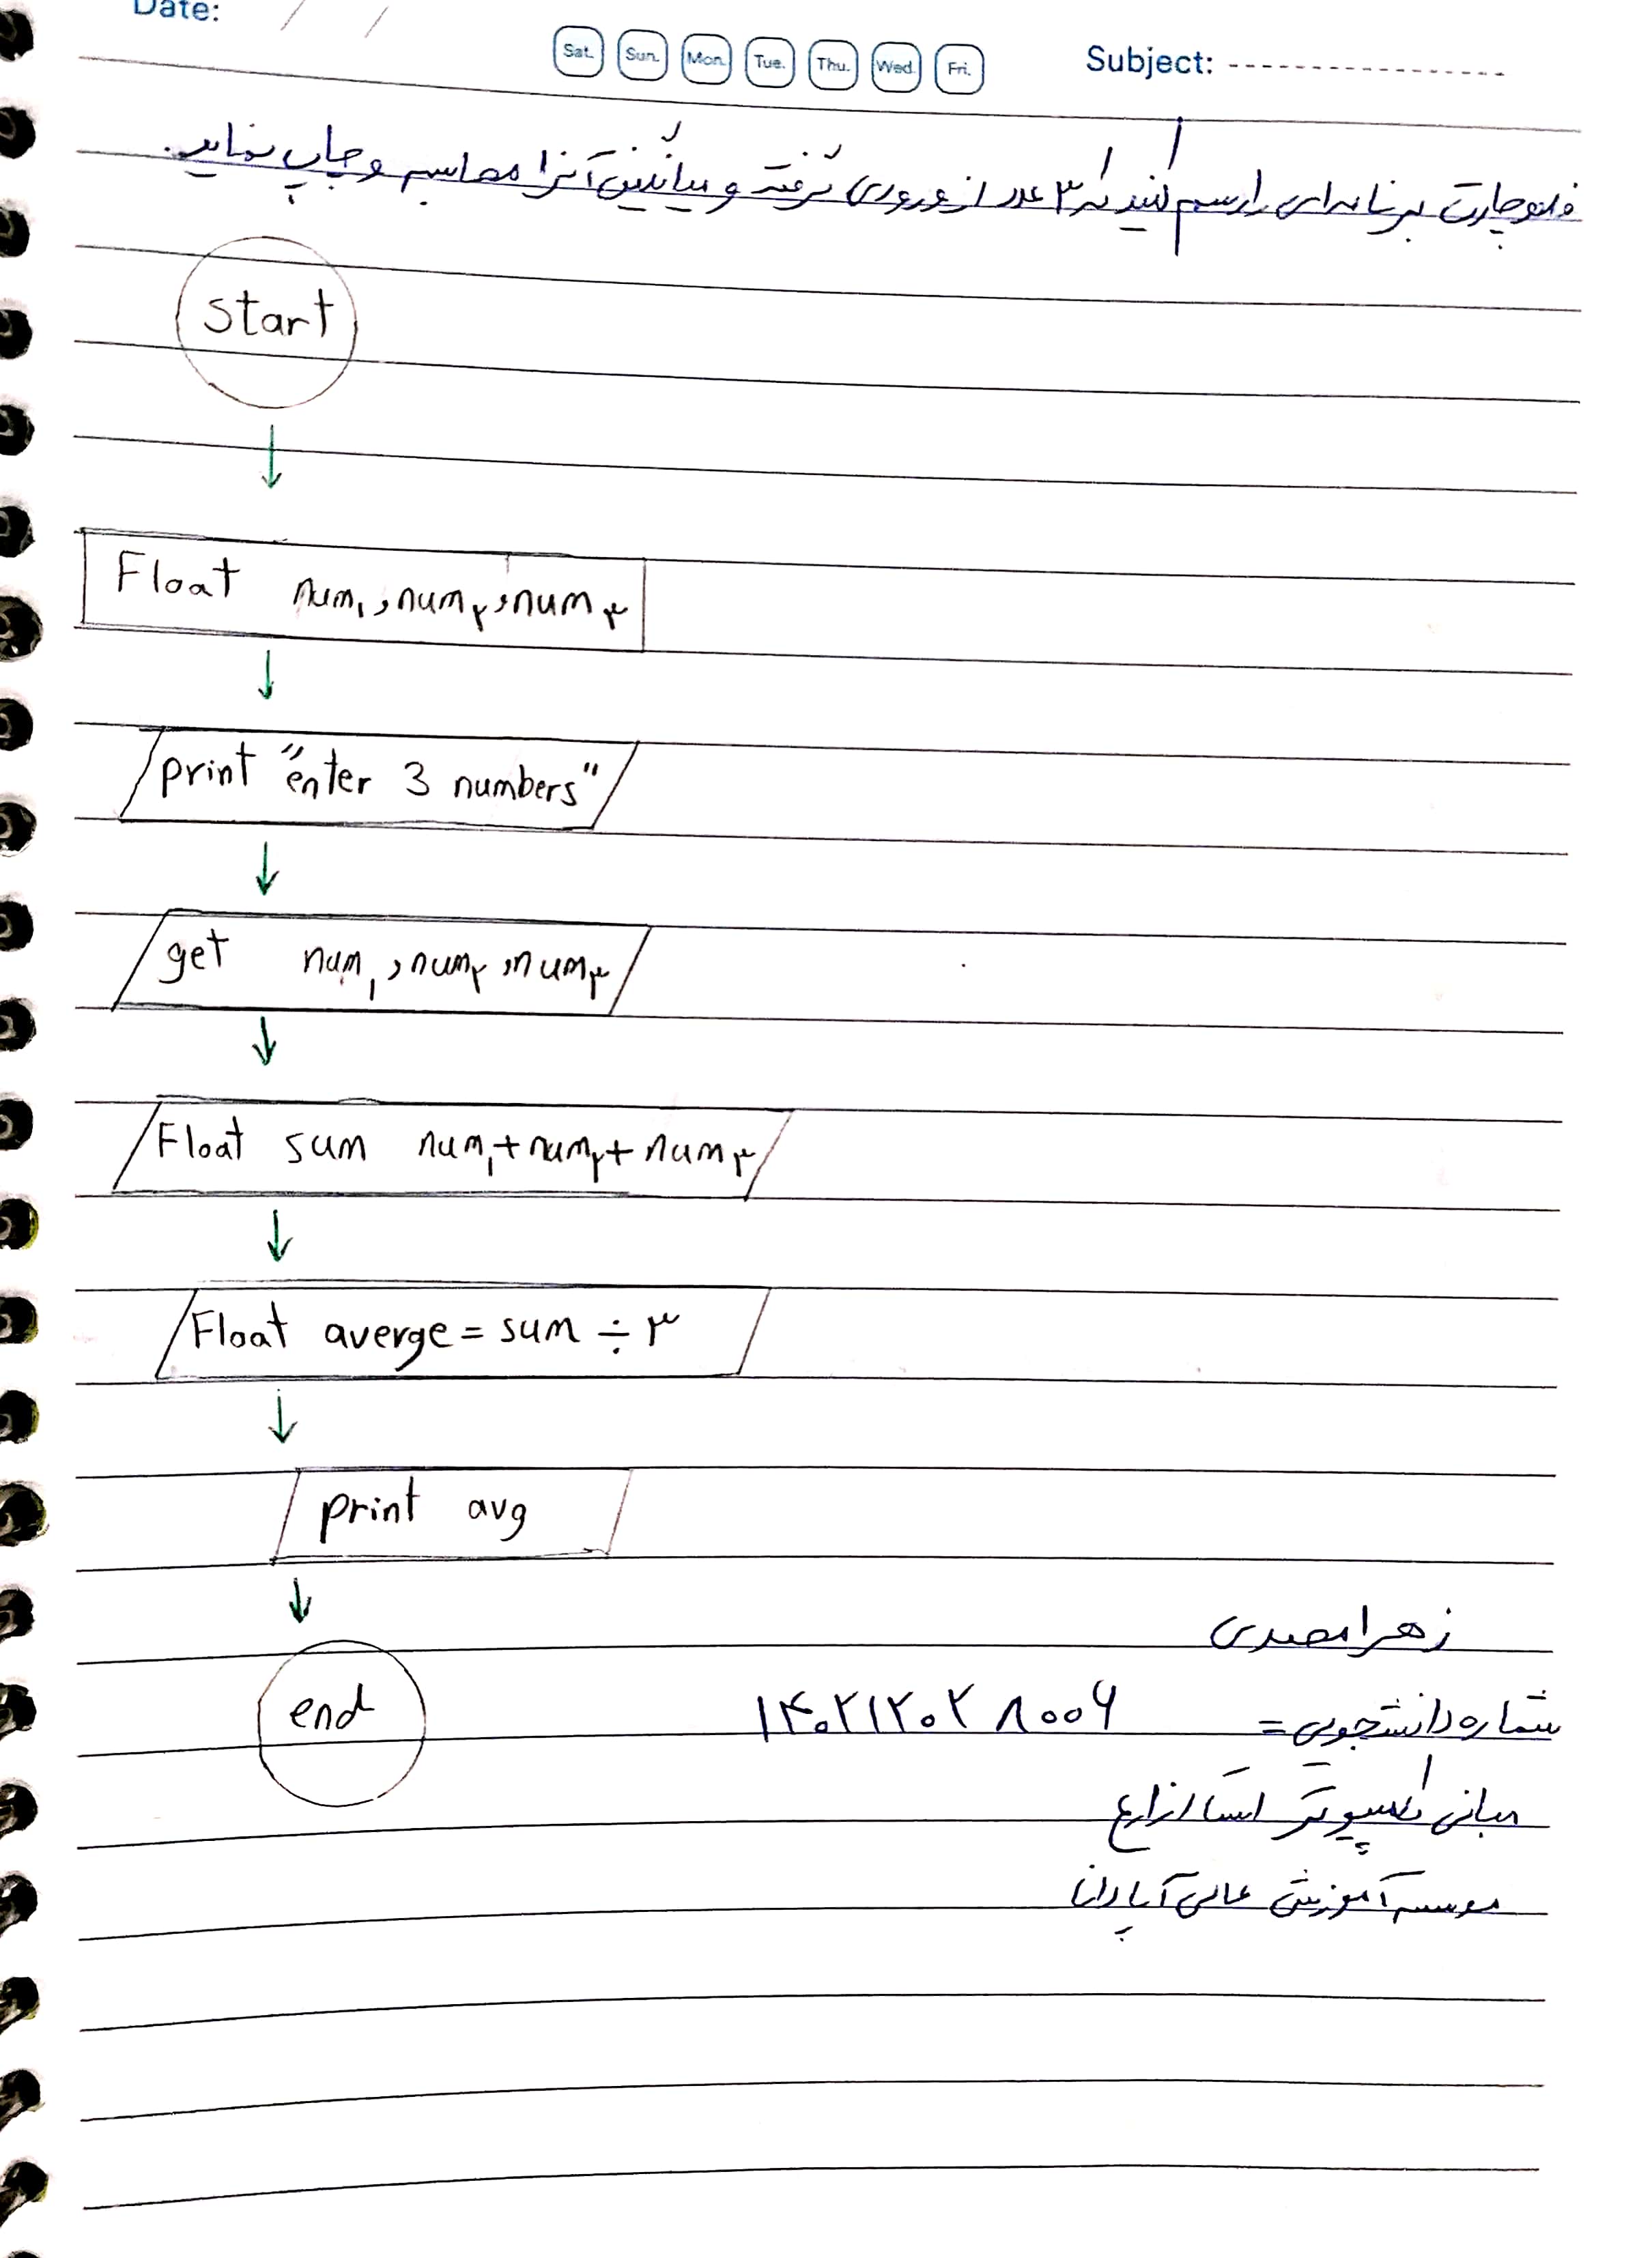 Date: / /
Sat. Sun. Mon. Tue. Thu. Wed. Fri.
Subject:
فلوچارت برنامه ای را رسم کنید که ۳ عدد از ورودی گرفته و میانگین آنرا محاسبه و چاپ نماید.
start
Float num₁, num۲, num۳
print "enter 3 numbers"
get num₁, num۲, num۳
Float sum num₁+num۲+num۳
Float averge = sum ÷ ۳
print avg
end
زهرا
شماره دانشجویی = ۱۴۰۲۱۲۰۲۸۰۰۶
مبانی کامپیوتر استاد زارع
موسسه آموزش عالی آپادانا